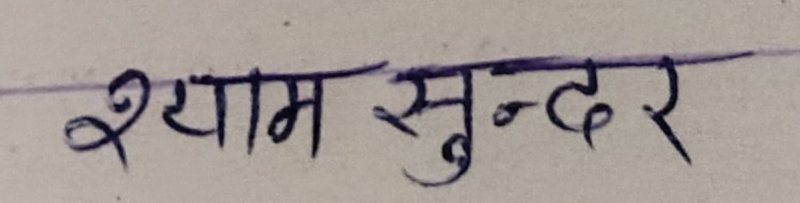 श्याम सुन्दर